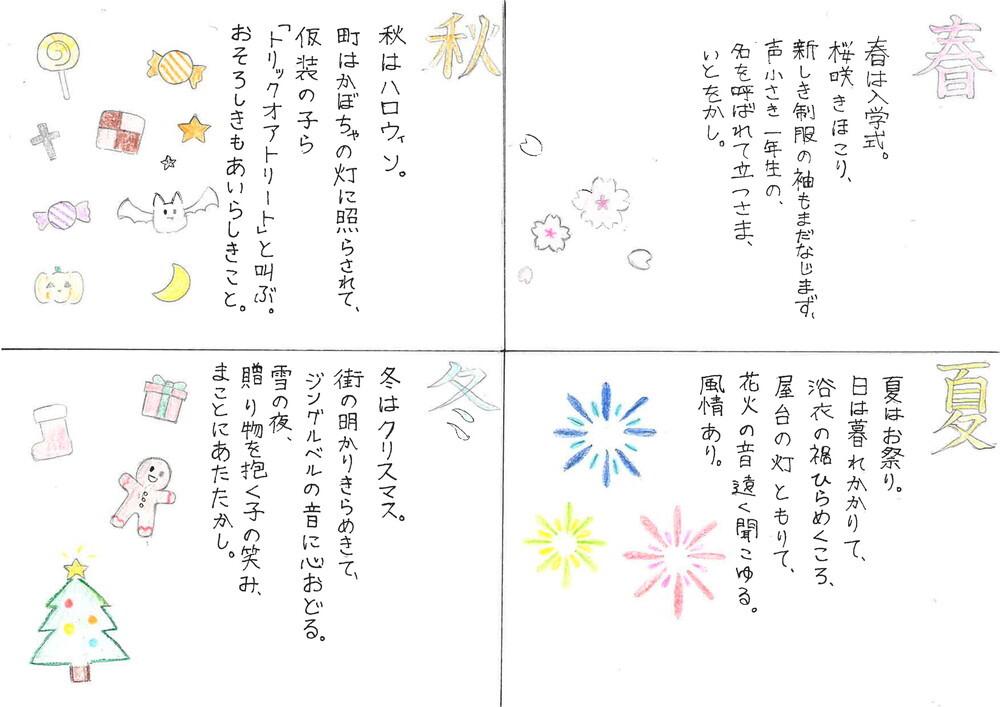 春
春は入学式。
桜咲きほこり、
新しき制服の袖もまだなじまず、
声小さき一年生の、
名を呼ばれて立つさま、
いとをかし。
夏
夏はお祭り。
日は暮れかかりて、
浴衣の裾ひらめくころ、
屋台の灯ともりて、
花火の音遠く聞こゆる。
風情あり。
秋
秋はハロウィン。
町はかぼちゃの灯に照らされて、
仮装の子ら
「トリックオアトリート」と叫ぶ。
おそろしきもあいらしきこと。
冬
冬はクリスマス。
街の明かりきらめきて、
ジングルベルの音に心おどる。
雪の夜、
贈り物を抱く子の笑み、
まことにあたたかし。